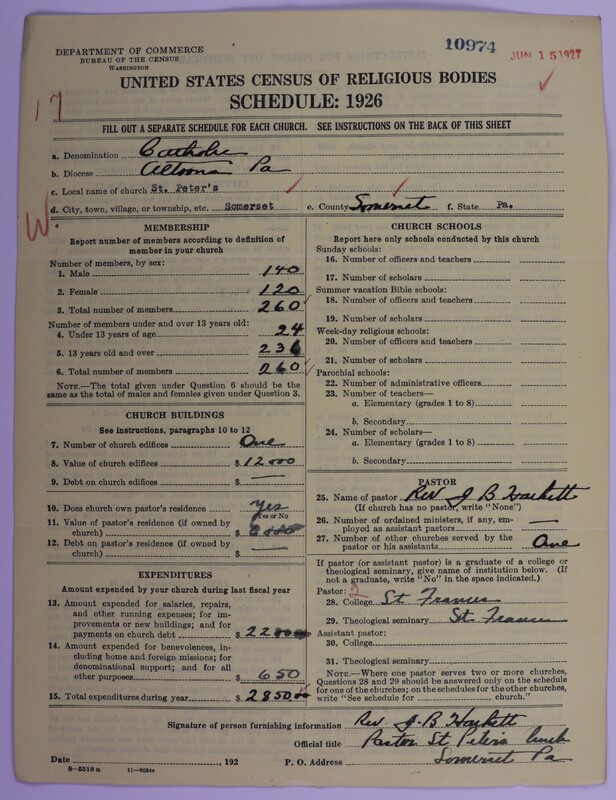 DEPARTMENT OF COMMERCE
BUREAU OF THE CENSUS
WASHINGTON
10974
JUN 15 1927
17
UNITED STATES CENSUS OF RELIGIOUS BODIES
SCHEDULE: 1926
FILL OUT A SEPARATE SCHEDULE FOR EACH CHURCH. SEE INSTRUCTIONS ON THE BACK OF THIS SHEET
a. Denomination Catholic
b. Diocese Altoona Pa
c. Local name of church St. Peter's
d. City, town, village, or township, etc. Somerset e. County Somerset f. State Pa.
W.
MEMBERSHIP
Report number of members according to definition of
member in your church
Number of members, by sex:
1. Male 140
2. Female 120
3. Total number of members 260
Number of members under and over 13 years old:
4. Under 13 years of age 24
5. 13 years old and over 236
6. Total number of members 260
NOTE.—The total given under Question 6 should be the
same as the total of males and females given under Question 3.
CHURCH BUILDINGS
See instructions, paragraphs 10 to 12
7. Number of church edifices One
8. Value of church edifices $ 12000
9. Debt on church edifices $ —
10. Does church own pastor's residence Yes
Yes or No
11. Value of pastor's residence (if owned by
church) $
12. Debt on pastor's residence (if owned by
church) $ —
EXPENDITURES
Amount expended by your church during last fiscal year
13. Amount expended for salaries, repairs,
and other running expenses; for im-
provements or new buildings; and for
payments on church debt $ 2200
14. Amount expended for benevolences,
including home and foreign missions; for
denominational support; and for all
other purposes $ 650
15. Total expenditures during year $ 2850.00
CHURCH SCHOOLS
Report here only schools conducted by this church
Sunday schools:
16. Number of officers and teachers
17. Number of scholars
Summer vacation Bible schools:
18. Number of officers and teachers
19. Number of scholars
Week-day religious schools:
20. Number of officers and teachers
21. Number of scholars
Parochial schools:
22. Number of administrative officers
23. Number of teachers—
a. Elementary (grades 1 to 8)
b. Secondary
24. Number of scholars—
a. Elementary (grades 1 to 8)
b. Secondary
PASTOR
25. Name of pastor Rev J B Hackett
(If church has no pastor, write "None")
26. Number of ordained ministers, if any, em-
ployed as assistant pastors —
27. Number of other churches served by the
pastor or his assistants One
If pastor (or assistant pastor) is a graduate of a college or
theological seminary, give name of institution below. (If
not a graduate, write "No" in the space indicated.)
Pastor: 2
28. College St Francis
29. Theological seminary St Francis
Assistant pastor:
30. College
31. Theological seminary
NOTE.—Where one pastor serves two or more churches,
Questions 28 and 29 should be answered only on the schedule
for one of the churches; on the schedules for the other churches,
write "See schedule for church."
Signature of person furnishing information Rev J. B Hackett
Official title Pastor St Peters Church
Date , 192 P. O. Address Somerset Pa
8—5518 a 11—9264